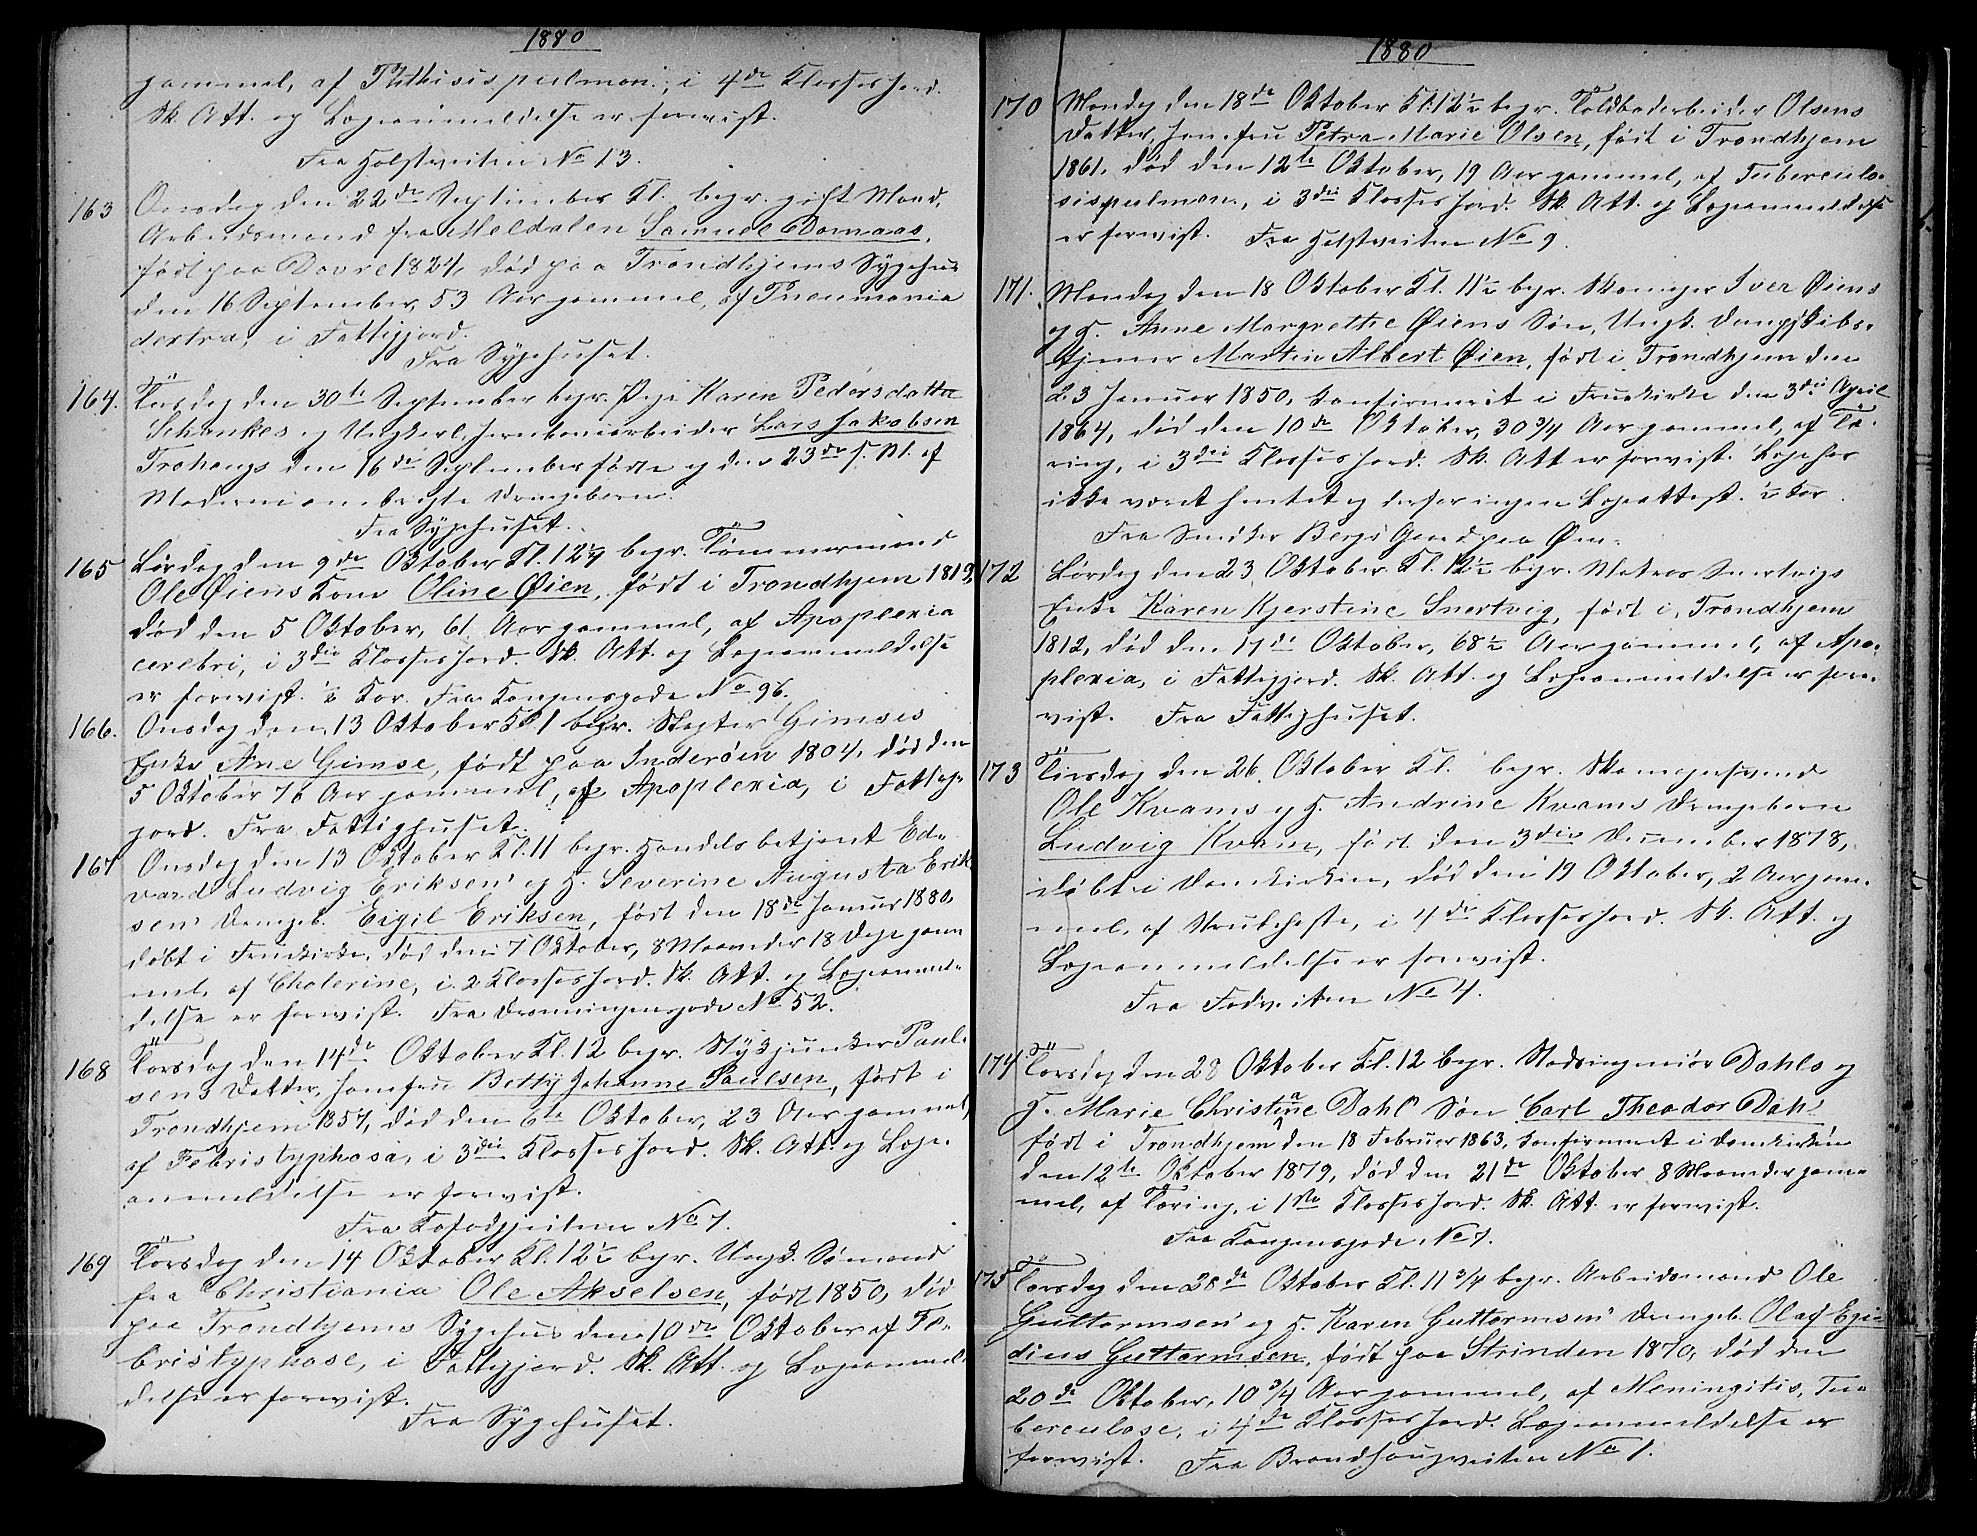 1880
gammel, af Phthisis pulmon., i 4de Klasses Jord.
Sk. Att. og Lægeanmeldelse er forevist.
Fra Holstveiten No 13.
163 Onsdag den 22de September Kl. begr. gift Mand,
Arbeidsmand fra Meldalen Samuel Domaas,
født paa Dovre 1824, død paa Trondhjems Sygehus
den 16 September, 53 Aar gammel, af Pneumonia
dextra, i Fattigjord.
Fra Sygehuset.
164. Torsdag den 30te September begr. Pige Karen Pedersdatter
Schankes og Ungkarl, Jernbanearbeider Lars Jakobsen
Trohaugs den 16de September fødte og den 23de s. M. af
Moderen ombragte Drengebarn.
Fra Sygehuset.
165 Lørdag den 9de Oktober Kl. 12 1/4 begr. Tømmermand
Ole Øiens Kone Oline Øien, født i Trondhjem 1819,
død den 5 Oktober, 61 Aar gammel, af Apoplexia
cerebri, i 3die Klasses Jord. Sk. Att. og Lægeanmeldelse
er forevist. 1/2 Kor. Fra Kongensgade No 96.
166. Onsdag den 13 Oktober Kl 1 begr. Slagter Gimses
Enke Ane Gimse, født paa Inderøen 1804, død den
5 Oktober 76 Aar gammel, af Apoplexia, i Fattig-
jord. Fra Fattighuset.
167 Onsdag den 13 Oktober Kl. 11 begr. Handelsbetjent Ed-
vard Ludvig Eriksen' og H. Severine Augusta Erik
sen' Drengeb. Eigil Eriksen, født den 18de Januar 1880,
døbt i Fruekirke, død den 7 Oktober, 8 Maaneder 18 Dage gam
mel, af Cholerine, i 2 Klasses Jord. Sk. Att. og Lægeanmel-
delse er forevist. Fra Dronningensgade No 52.
168 Torsdag den 14de Oktober Kl. 12 begr. Stykjunker Paul-
sens Datter, Jomfru Betty Johanne Paulsen, født i
Trondhjem 1857, død den 6te Oktober, 23 Aar gammel,
af Febris typhosa, i 3die Klasses Jord. Sk. Att. og Læge-
anmeldelse er forevist.
Fra Tafodgjeiten No 7.
169 Torsdag den 14 Oktober Kl. 12 1/2 begr. Ungk. Sømand
fra Christiania Ole Akselsen, født 1850, død
paa Trondhjems Sygehus den 10de Oktober af Fe-
bris typhose, i Fattigjord. Sk. Att. og Lægeanmel-
delse er forevist.
Fra Sygehuset.
1880
170 Mandag den 18de Oktober Kl. 12 1/2 begr. Toldbodarbeider Olsens
Datter, Jomfru Petra Marie Olsen, født i Trondhjem
1861, død den 12te Oktober, 19 Aar gammel, af Tuberculo-
sis pulmon., i 3die Klasses Jord. Sk. Att. og Lægeanmeldelse
er forevist. Fra Holstveiten No 9.
171. Mandag den 18 Oktober Kl. 11 1/2 begr. Skomager Iver Øiens
og H. Anne Margrethe Øiens Søn, Ungk. Dampskibs-
tjener Martin Albert Øien, født i Trondhjem den
23 Januar 1850, konfirmeret i Fruekirke den 3die April
1864, død den 10de Oktober, 30 3/4 Aar gammel, af Tæ-
ring, i 3die Klasses Jord. Sk. Att er forevist. Læge har
ikke været hentet og derfor ingen Lægeattest. 1/2 Kor.
Fra Snedker Bergs Gaard paa Øen.
172 Lørdag den 23 Oktober Kl. 12 1/2 begr. Matros Snertvigs
Enke Karen Kjerstine Snertvig, født i Trondhjem
1812, død den 17de Oktober, 68 1/2 Aar gammel, af Apo-
plexia, i Fattigjord. Sk. Att. og Lægeanmeldelse er fore-
vist. Fra Fattighuset.
173 Tirsdag den 26 Oktober Kl. begr. Skomagersvend
Ole Kvams og H. Andrine Kvams Drengebarn
Ludvig Kvam, født den 3die December 1878,
døbt i Domkirken, død den 19 Oktober, 2 Aar gam-
mel, af Strubehoste, i 4de Klasses Jord. Sk. Att. og
Lægeanmeldelse er forevist.
Fra Fadveiten No 4.
174 Torsdag den 28 Oktober Kl. 12 begr. Stadsingeniør Dahls og
H. Marie Christiane Dahl' Søn Carl Theodor Dahl
født i Trondhjem den 18 Februar 1863, konfirmeret i Domkirken
den 12te Oktober 1879, død den 21de Oktober 8 Maaneder gam-
mel, af Tæring, i 1ste Klasses Jord. Sk. Att. er forevist.
Fra Kongensgade No 7.
175 Torsdag den 28de Oktober Kl. 11 3/4 begr. Arbeidsmand Ole
Guttormsen' og H. Karen Guttormsen' Drengeb. Olaf Egi-
dius Guttormsen, født paa Strinden 1870, død den
20de Oktober, 10 3/4 Aar gammel, af Meningitis, Tu-
berculose, i 4de Klasses Jord. Lægeanmeldelse er
forevist. Fra Brandhaugveiten No 1.